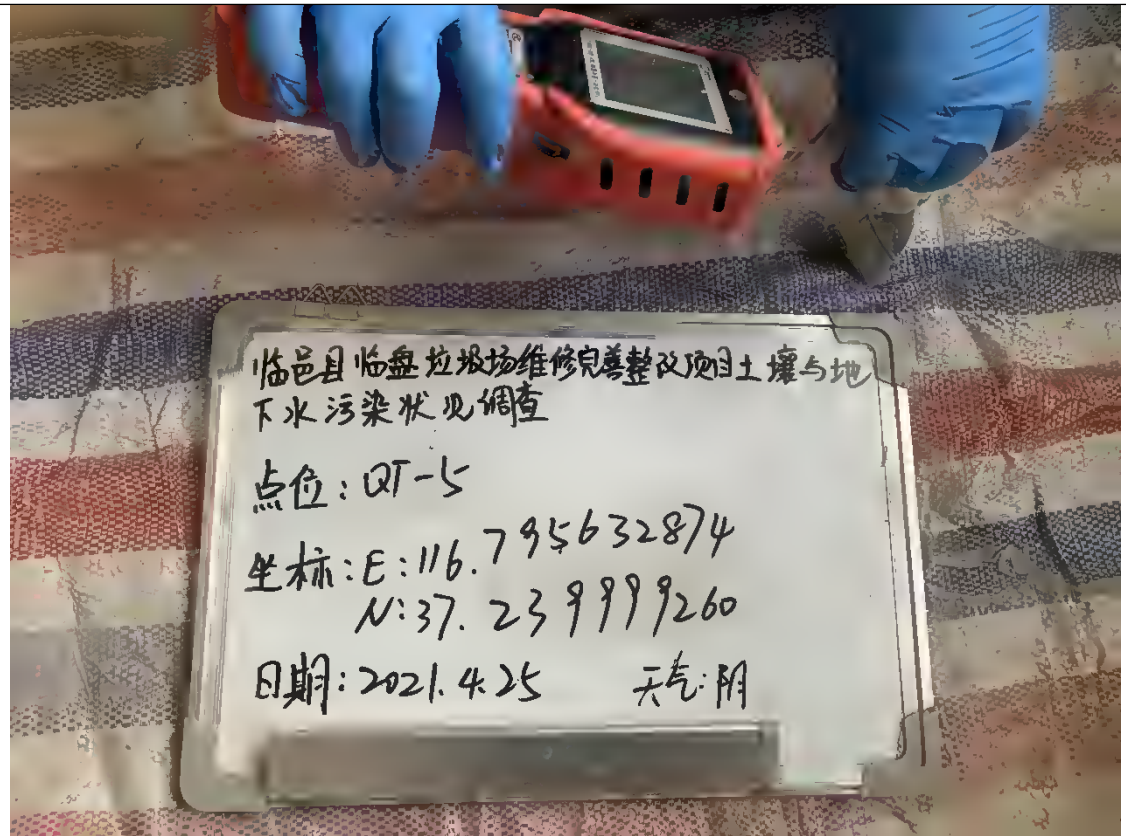 临邑县临盘垃圾场维修完善整改项目土壤与地
下水污染状况调查
点位:QT-5
坐标:E:116.795632874
N:37.239999260
日期:2021.4.25 天气:阴